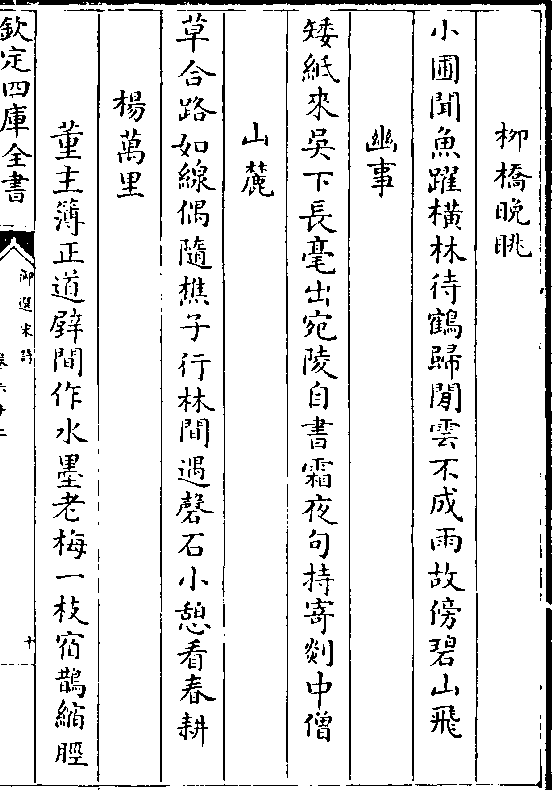 柳橋晚眺
小圃聞魚躍橫林待鶴歸閒雲不成雨故傍碧山飛
幽事
矮紙來吳下長毫出宛陵自書霜夜句持寄剡中僧
山麓
草合路如線偶隨樵子行林間遇磬石小憩看春耕
楊萬里
董主簿正道壁間作水墨老梅一枝宿鵲縮脛
欽定四庫全書
御選宋詩
十